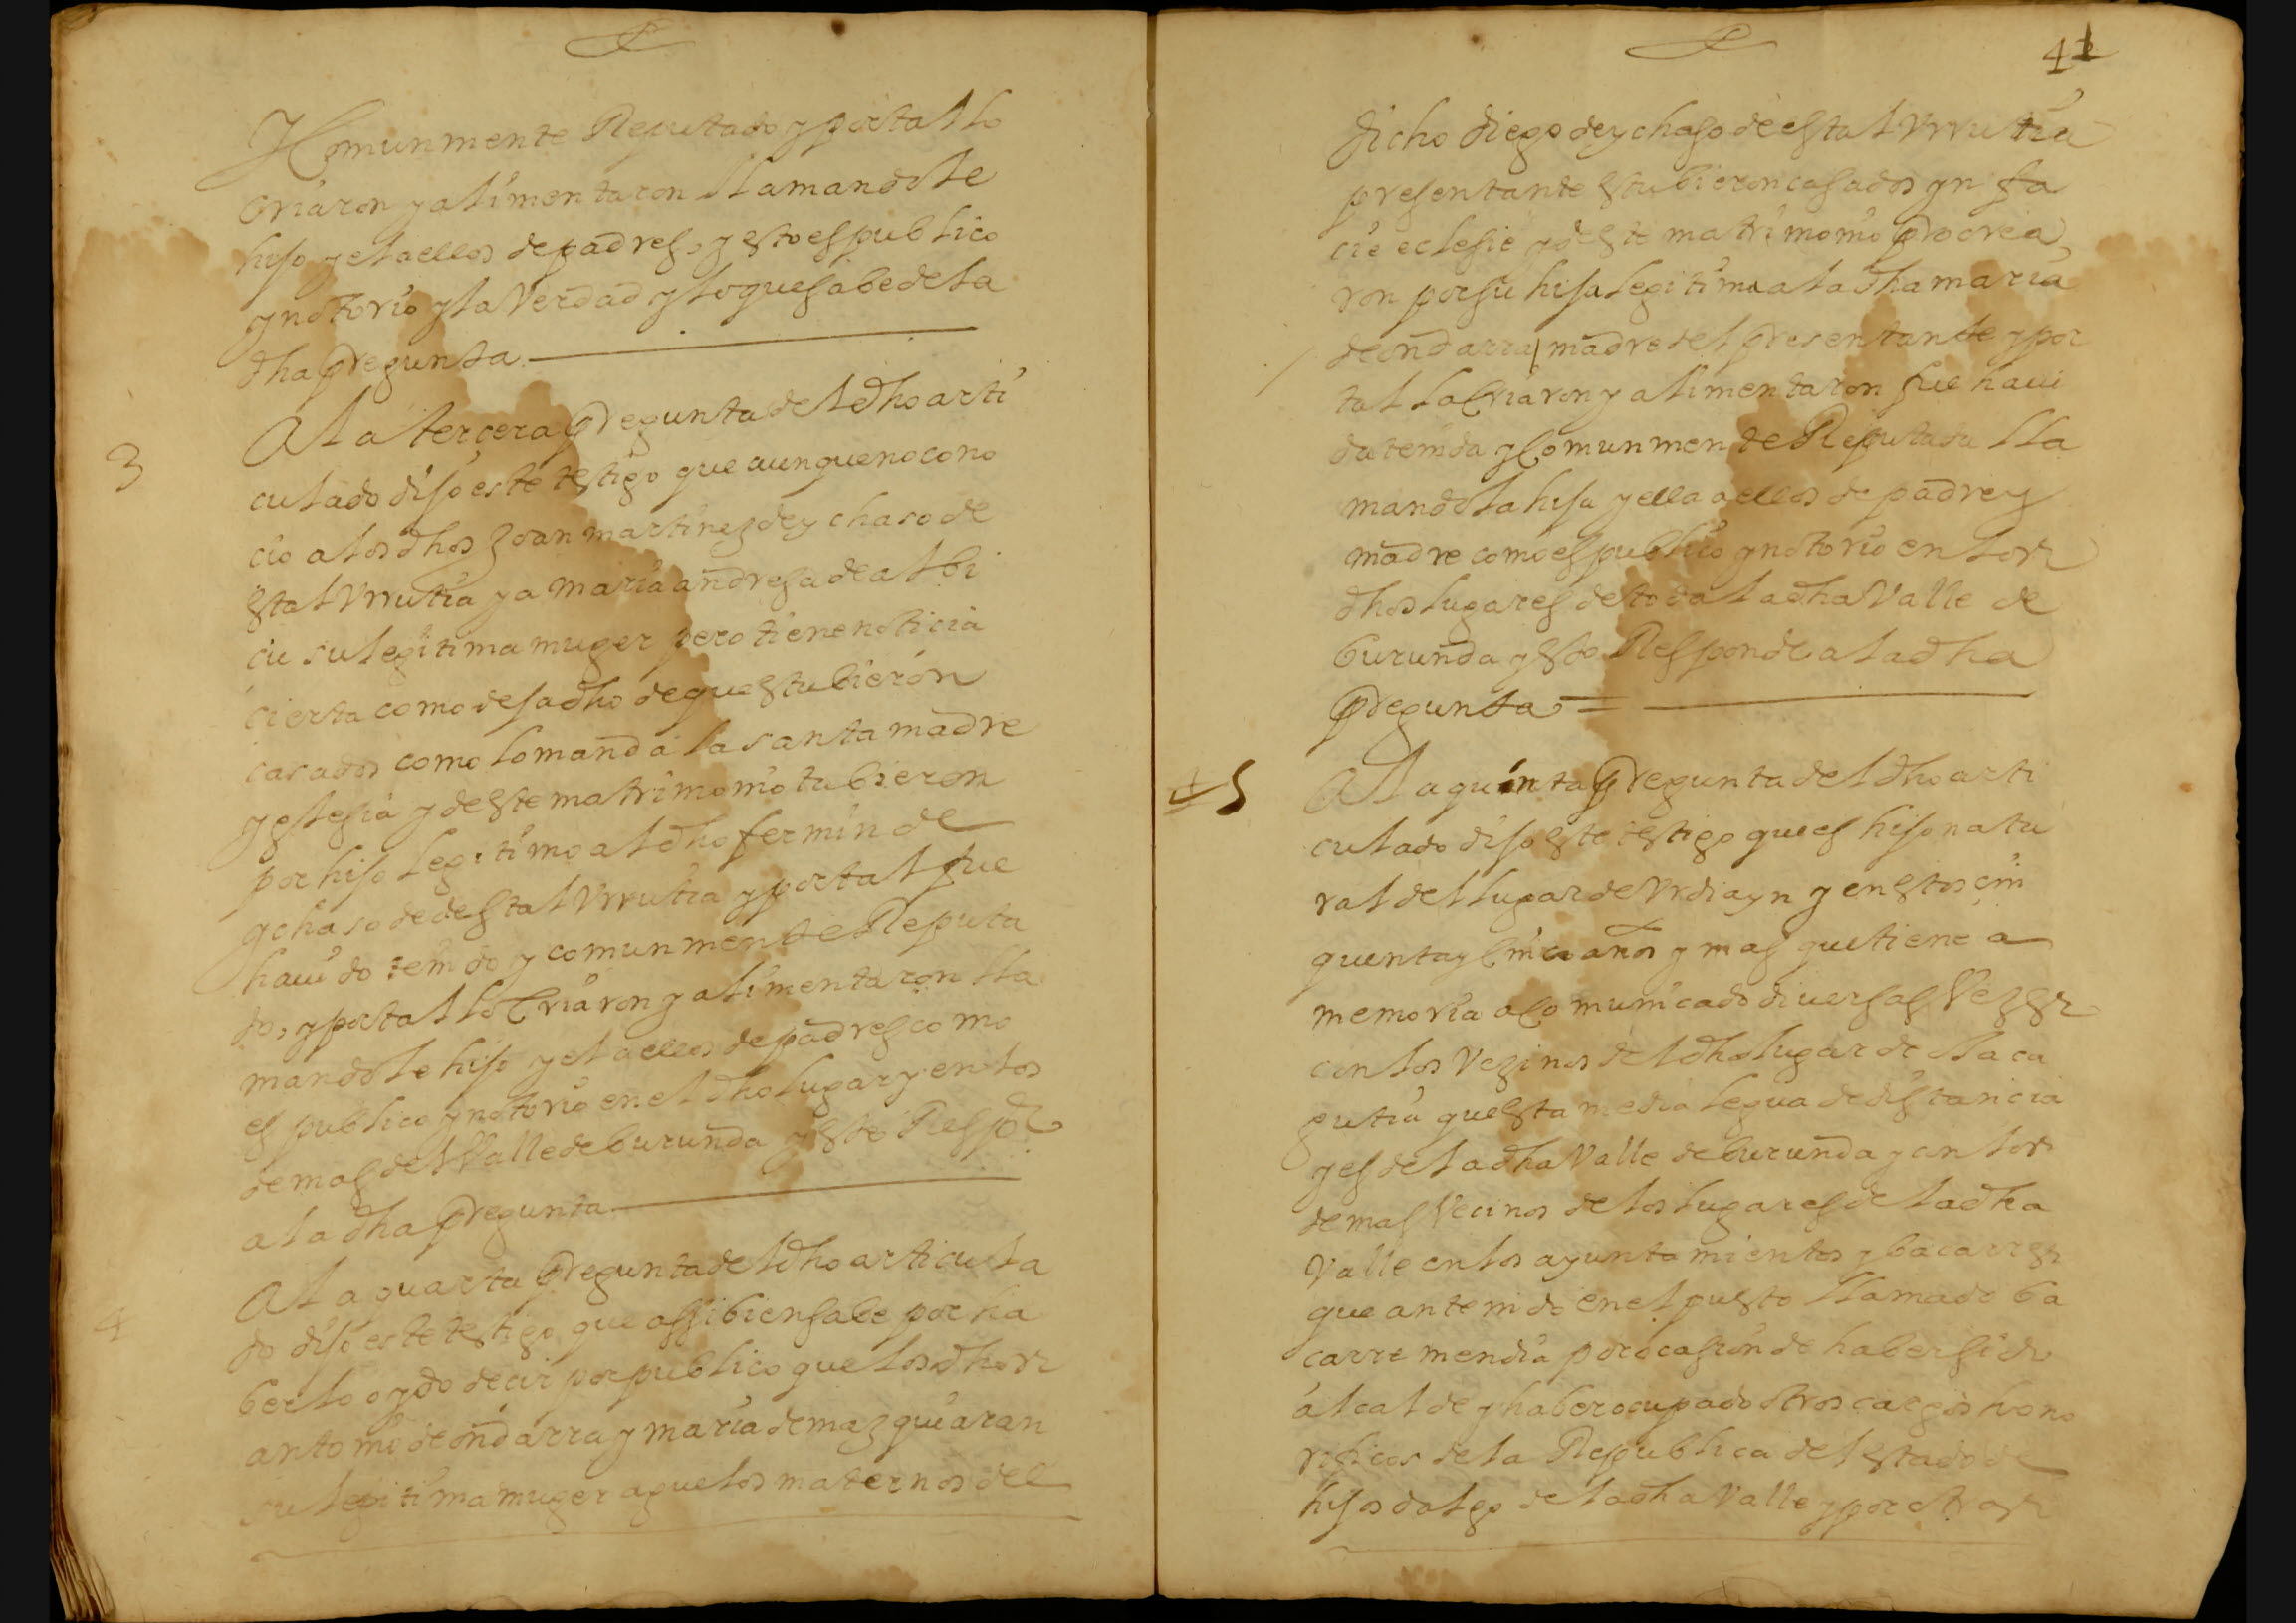 Y Comunmente Reputado y por tal lo
criaron y alimentaron llamandole
hijo y el a ellos de padres, y esto es publico
y notorio y la verdad y lo que sabe de la
dha pregunta
3
A la tercera pregunta del dho arti
culado dijo este testigo que aunque no cono
cio a los dhos Joan martinez de ychaso de
estal Vrrutia y a maria andresa de albi
cu su legitima muger pero tiene noticia
cierta como desa dho de que estubieron
casados como lo manda la santa madre
yglesia y deste matrimonio tubieron
por hijo legitimo al dho fermin de
ychaso de estal Vrrutia y por tal fue
hauido tenido y comunmente Reputa
do, y por tal lo Criaron y alimentaron lla
mandole hijo y el a ellos de padres como
es publico y notorio en el dho lugar y en los
demas del Valle de burunda y esto Respde
a la dha pregunta
4
A la quarta pregunta del dho articula
do dijo este testigo que assi bien sabe por ha
berlo oydo decir por publico que los dhos
antonio de ondarra y maria de mazquiaran
su legitima muger aguelos maternos del
41
dicho diego de ychaso de estal Vrrutia
presentante estubieron casados yn fa
cie eclesie y deste matrimonio procrea
ron por su hija legitima a la dha maria
de ondarra madre del presentante y por
tal la Criaron y alimentaron fue haui
da tenida y Comunmente Reputada lla
mandola hija y ella a ellos de padre y
madre como es publico y notorio en los
dhos lugares de toda la dha Valle de
burunda y esto Responde a la dha
pregunta
5
A la quinta pregunta del dho arti
culado dijo este testigo que es hijo natu
ral del lugar de Vrdiayn y en estos cin
quenta y Cinco años y mas que tiene a
memoria a Comunicado diuersas Vezes
con los Vezinos del dho lugar de ytaca
gutia questa media legua de distancia
y es de la dha Valle de burunda y con los
demas Vecinos de los lugares de la dha
Valle en los ayuntamientos y bacarres
que an tenido en el puesto llamado ba
carre mendia por ocasion de haber sido
alcalde y haber ocupado otros cargos hono
rificos de la Republica del estado de
hijosdalgo de la dha Valle y por otras